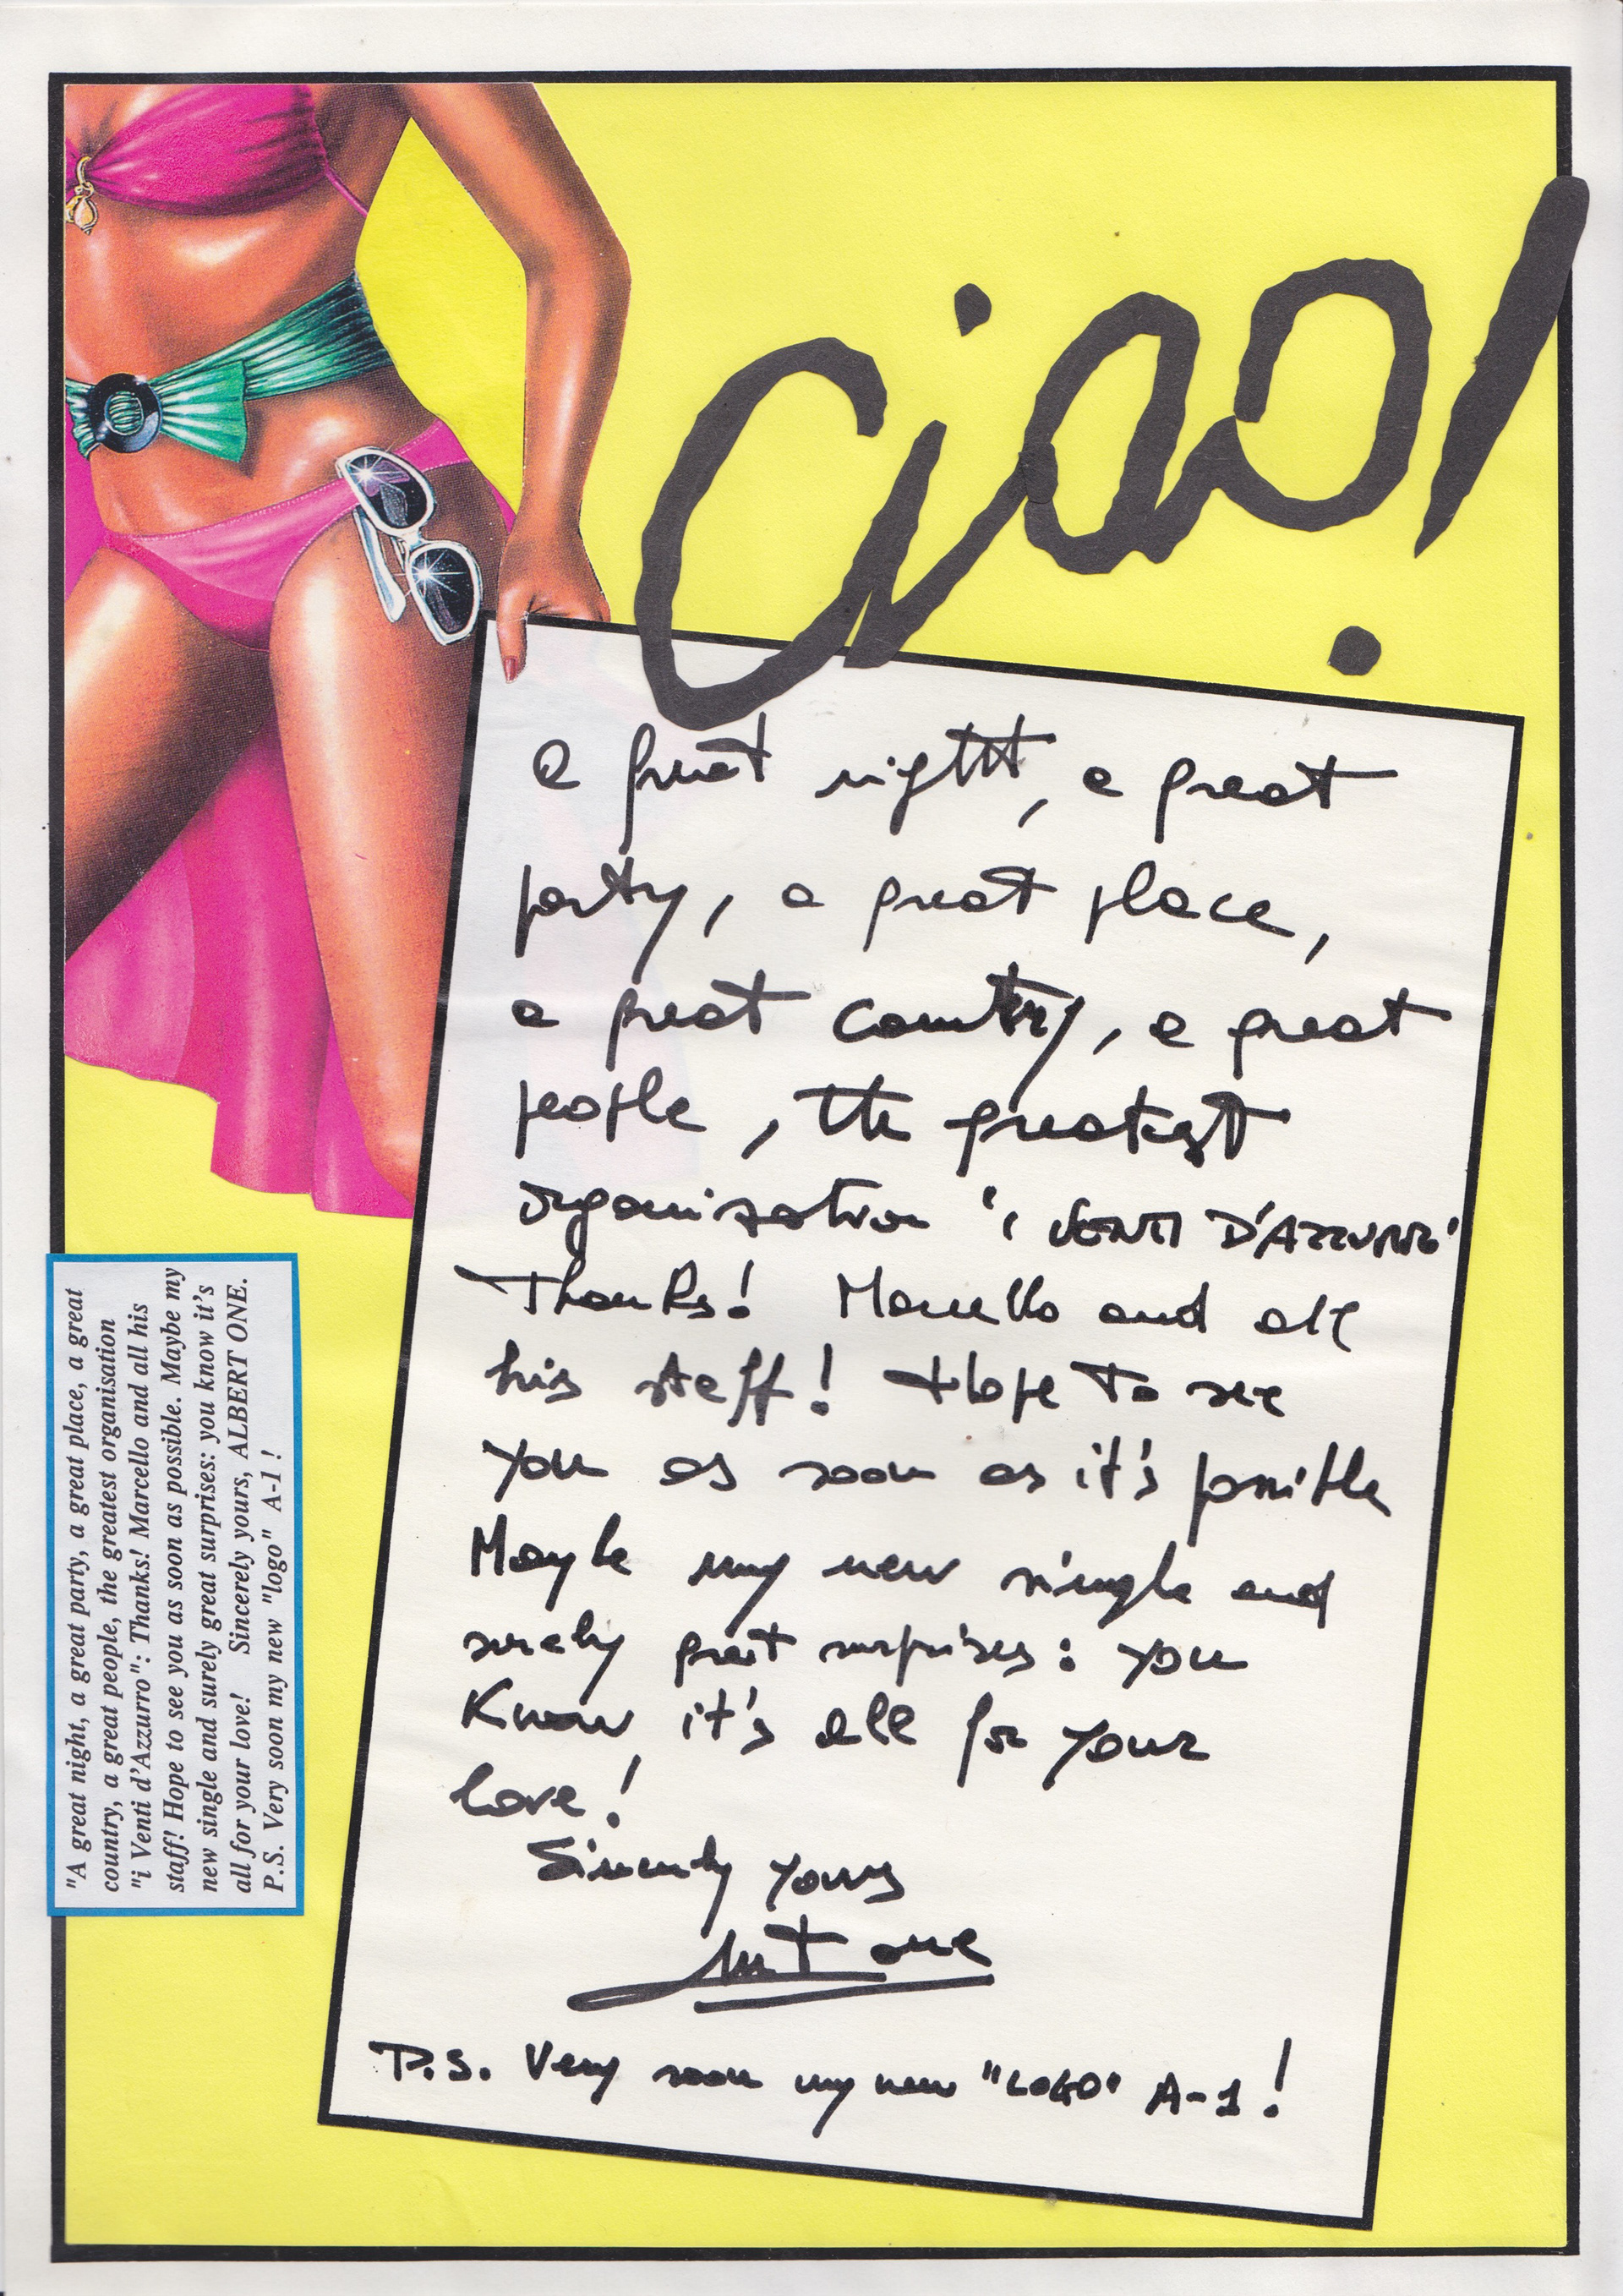 Ciao!
a great night, a great
party, a great place,
a great country, a great
people, the greatest
organisation "i VENTI D'AZZURRO"
Thanks! Marcello and all
his staff! Hope to see
you as soon as it's possible
Maybe my new single and
surely great surprises: you
Know it's all for your
love!
Sincerely yours
Albert one
P.S. Very soon my new "LOGO" A-1!
"A great night, a great party, a great place, a great
country, a great people, the greatest organisation
"i Venti d'Azzurro": Thanks! Marcello and all his
staff! Hope to see you as soon as possible. Maybe my
new single and surely great surprises: you know it's
all for your love! Sincerely yours, ALBERT ONE.
P.S. Very soon my new "logo" A-1 !